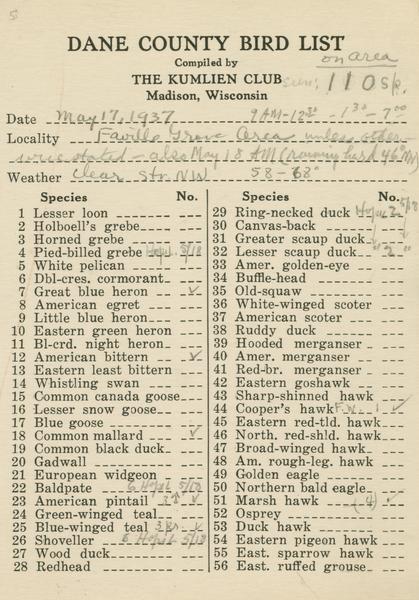 5
DANE COUNTY BIRD LIST
on area
Compiled by
THE KUMLIEN CLUB
seen: 110 sp.
Madison, Wisconsin
Date May 17, 1937 9 AM-12:30 - 1:30 - 7:00
Locality Faville Grove Area unless other-
wise stated - also May 18 AM (raining hard 46° NW)
Weather Clear Str. NW 58-68°
Species No.
1 Lesser loon
2 Holboell's grebe
3 Horned grebe
4 Pied-billed grebe Hopi. 5/18
5 White pelican
6 Dbl-cres. cormorant
7 Great blue heron ✓
8 American egret
9 Little blue heron
10 Eastern green heron
11 Bl-crd. night heron
12 American bittern ✓
13 Eastern least bittern
14 Whistling swan
15 Common canada goose
16 Lesser snow goose
17 Blue goose
18 Common mallard ✓
19 Common black duck
20 Gadwall
21 European widgeon
22 Baldpate 6 Hopi. 5/18
23 American pintail 3 ✓
24 Green-winged teal
25 Blue-winged teal 3 prs. ✓
26 Shoveller 6 Hopi. 5/18
27 Wood duck
28 Redhead
Species No.
29 Ring-necked duck Hopi. 2 5/18
30 Canvas-back
31 Greater scaup duck
32 Lesser scaup duck " 2 "
33 Amer. golden-eye
34 Buffle-head
35 Old-squaw
36 White-winged scoter
37 American scoter
38 Ruddy duck
39 Hooded merganser
40 Amer. merganser
41 Red-br. merganser
42 Eastern goshawk
43 Sharp-shinned hawk
44 Cooper's hawk F.W. 1 ✓
45 Eastern red-tld. hawk
46 North. red-sh!d. hawk
47 Broad-winged hawk
48 Am. rough-leg. hawk
49 Golden eagle
50 Northern bald eagle
51 Marsh hawk (4) ✓
52 Osprey
53 Duck hawk
54 Eastern pigeon hawk
55 East. sparrow hawk
56 East. ruffed grouse